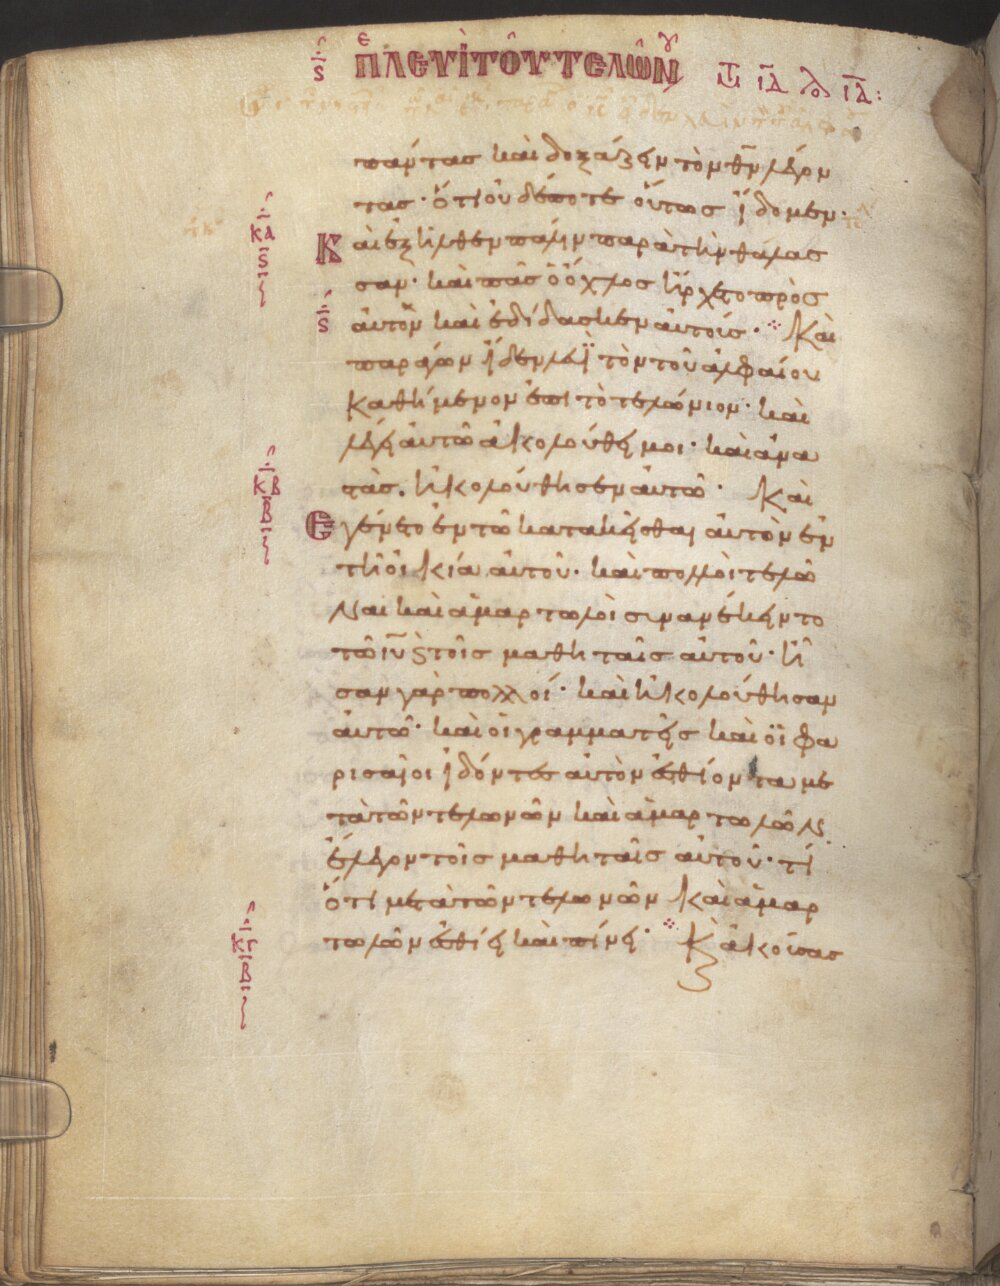 ϛ Πε Λευὶ τοῦ τελώνου
πάντας καὶ δοξάζειν τὸν θν λέγον
τας· ὅτι οὐδέποτε οὕτως ἴδομεν·
ΚΑ Καὶ ἐξῆλθεν πάλιν παρὰ τὴν θάλασ
ϛ σαν· καὶ πᾶς ὁ ὄχλος ἤρχετο πρὸς
ϛ αὐτὸν καὶ ἐδίδασκεν αὐτούς· Καὶ
παράγων ἴδεν λευῒ τὸν τοῦ ἀλφαίου
καθήμενον ἐπὶ τὸ τελώνιον· καὶ
λέγει αὐτῶ ἀκολούθει μοι· καὶ ἀνα
ΚΒ τὰς. ἠκολούθησεν αὐτῶ· Καὶ
Β Ἐγένετο ἐν τῶ κατακεῖσθαι αὐτὸν ἐν
τῆ οἰκία αὐτοῦ· καὶ πολλοὶ τελῶ
ναι καὶ ἁμαρτωλοὶ συνανέκειντο
τῶ ιυ ϗ τοῖς μαθηταῖς αὐτοῦ· ἦ
σαν γὰρ πολλοί· καὶ ἠκολούθησαν
αὐτῶ· καὶ οἱ γραμματεῖς καὶ οἱ φα
ρισαῖοι ἰδόντες αὐτὸν ἐσθίοντα με
τὰ τῶν τελωνῶν καὶ ἁμαρτωλῶν
ἔλεγον τοῖς μαθηταῖς αὐτοῦ· τί
ὅτι μετὰ τῶν τελωνῶν καὶ ἁμαρ
ΚΓ τωλῶν ἐσθίει καὶ πίνει· Κ ἀκούσας
Β